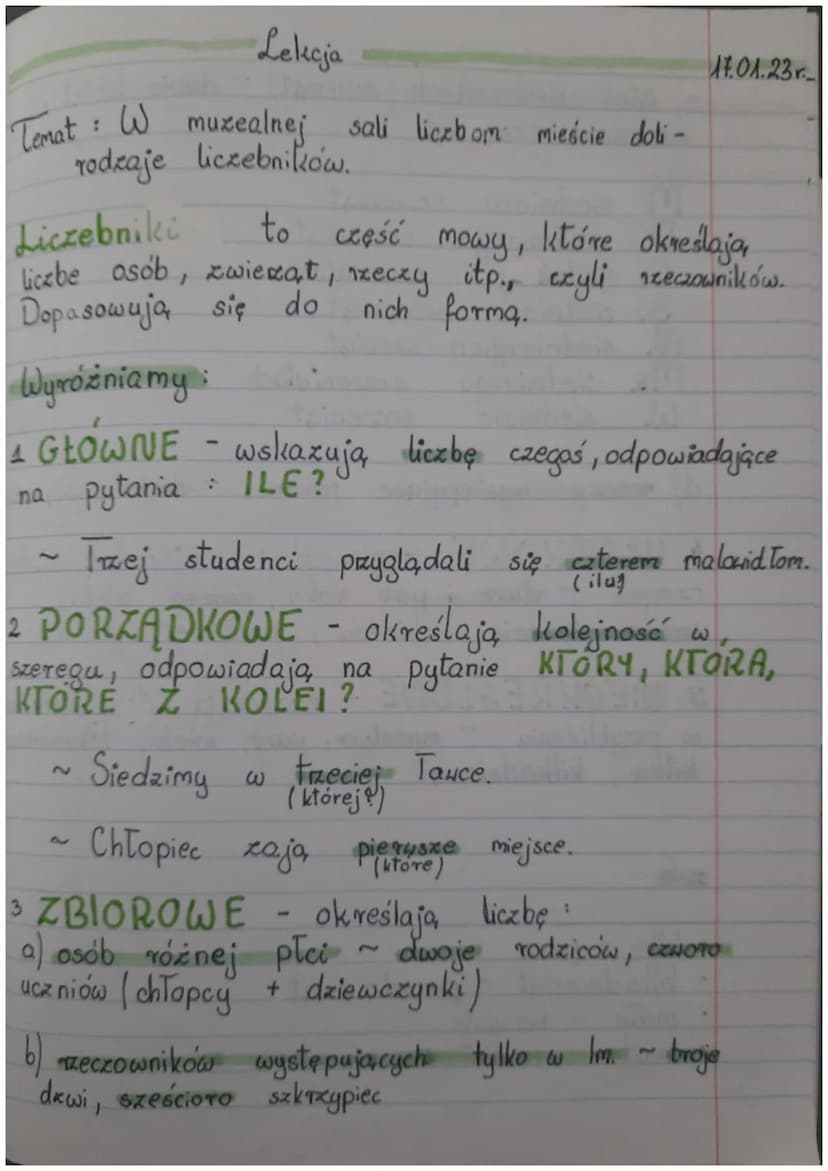 Lekcja
17.01.23r.
Temat : W muzealnej sali liczbom mieście doli -
rodzaje liczebników.
Liczebniki to część mowy, które określają
liczbe osób, zwierząt, rzeczy itp., czyli rzeczowników.
Dopasowują się do nich formą.
Wyróżniamy :
1 GŁÓWNE - wskazują liczbę czegoś, odpowiadające
na pytania : ILE?
~ Trzej studenci przyglądali się czterem malowidłom.
(ilu?)
2 PORZĄDKOWE - określają kolejność w
szeregu, odpowiadają na pytanie KTÓRY, KTÓRA,
KTÓRE Z KOLEI?
~ Siedzimy w trzeciej ławce.
(której?)
~ Chłopiec zają pierwsze miejsce.
(które)
3 ZBIOROWE - określają liczbę :
a) osób różnej płci ~ dwoje rodziców, czworo
uczniów (chłopcy + dziewczynki)
b) rzeczowników występujących tylko w lm. ~ troje
drzwi, sześcioro szkrzypiec